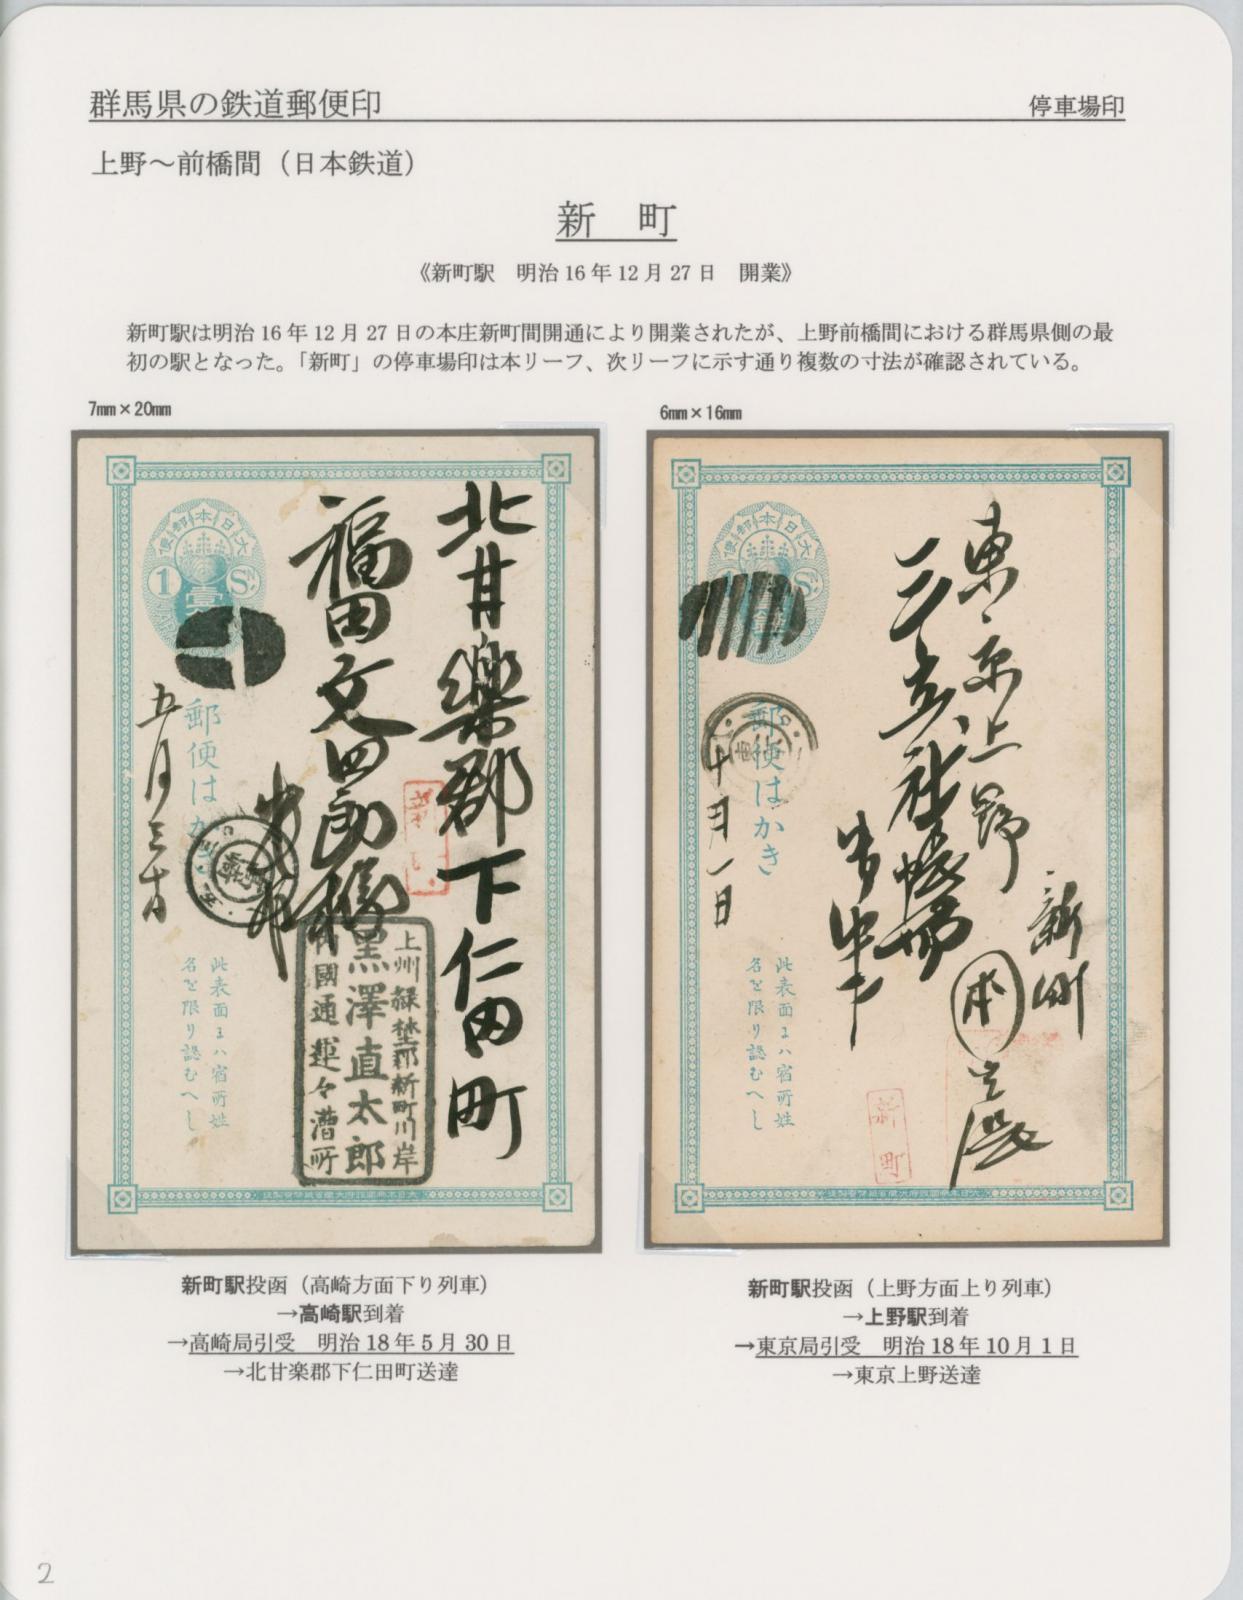 群馬県の鉄道郵便印
停車場印
上野～前橋間（日本鉄道）
新　町
《新町駅　明治16年12月27日　開業》
新町駅は明治16年12月27日の本庄新町間開通により開業されたが、上野前橋間における群馬県側の最
初の駅となった。「新町」の停車場印は本リーフ、次リーフに示す通り複数の寸法が確認されている。
7mm×20mm
北甘楽郡下仁田町
福田文四郎様
五月三十日
大日本郵便
1 S
壹
郵便はか
此表面ニハ宿所姓
名を限り認むへし
上州緑埜郡新町川岸
黒澤直太郎
國通運々漕所
新
6mm×16mm
東京上野
三立社帳場
新町
本
十月一日
大日本郵便
1 S
郵便はかき
此表面ニハ宿所姓
名を限り認むへし
新町
新町駅投函（高崎方面下り列車）
→高崎駅到着
→高崎局引受　明治18年5月30日
→北甘楽郡下仁田町送達
新町駅投函（上野方面上り列車）
→上野駅到着
→東京局引受　明治18年10月1日
→東京上野送達
2